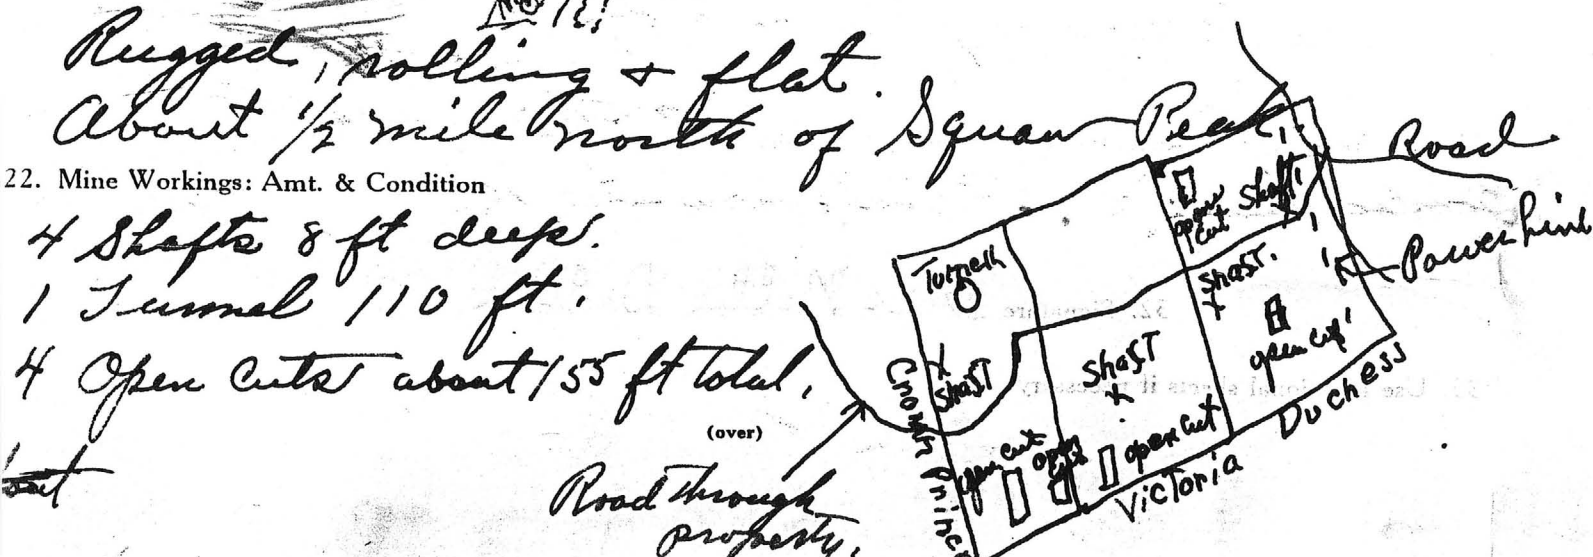 No 121
Rugged, rolling & flat.
About 1/2 mile north of Squaw Peak,
22. Mine Workings: Amt. & Condition
4 Shafts 8 ft deep.
1 Tunnel 110 ft.
4 Open Cuts about 155 ft total,
(over)
Road through
property.
Road
Power Line
open
cut
Shaft
Tunnel
Shaft
open cut
Shaft
Shaft
Crown Prince
open cut
open
cut
open cut
Victoria
Duchess